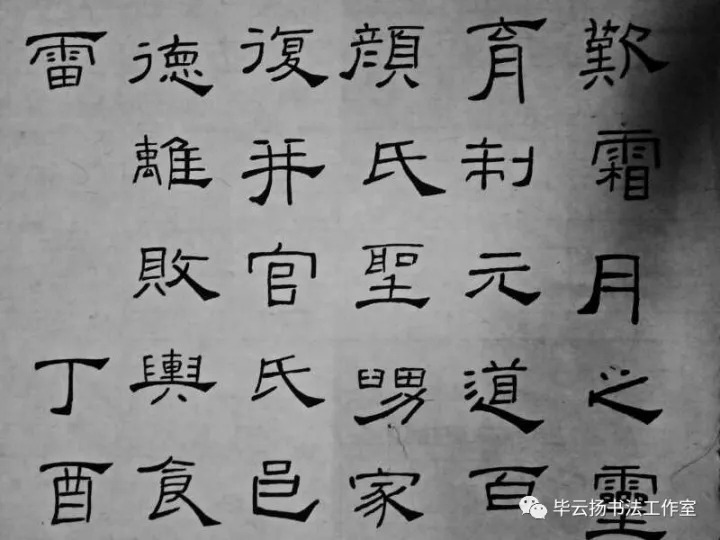 歎霜月之靈
育制元道百
顔氏聖舅家
復并官氏邑
徳離敗輿食
雷丁酉
毕云扬书法工作室